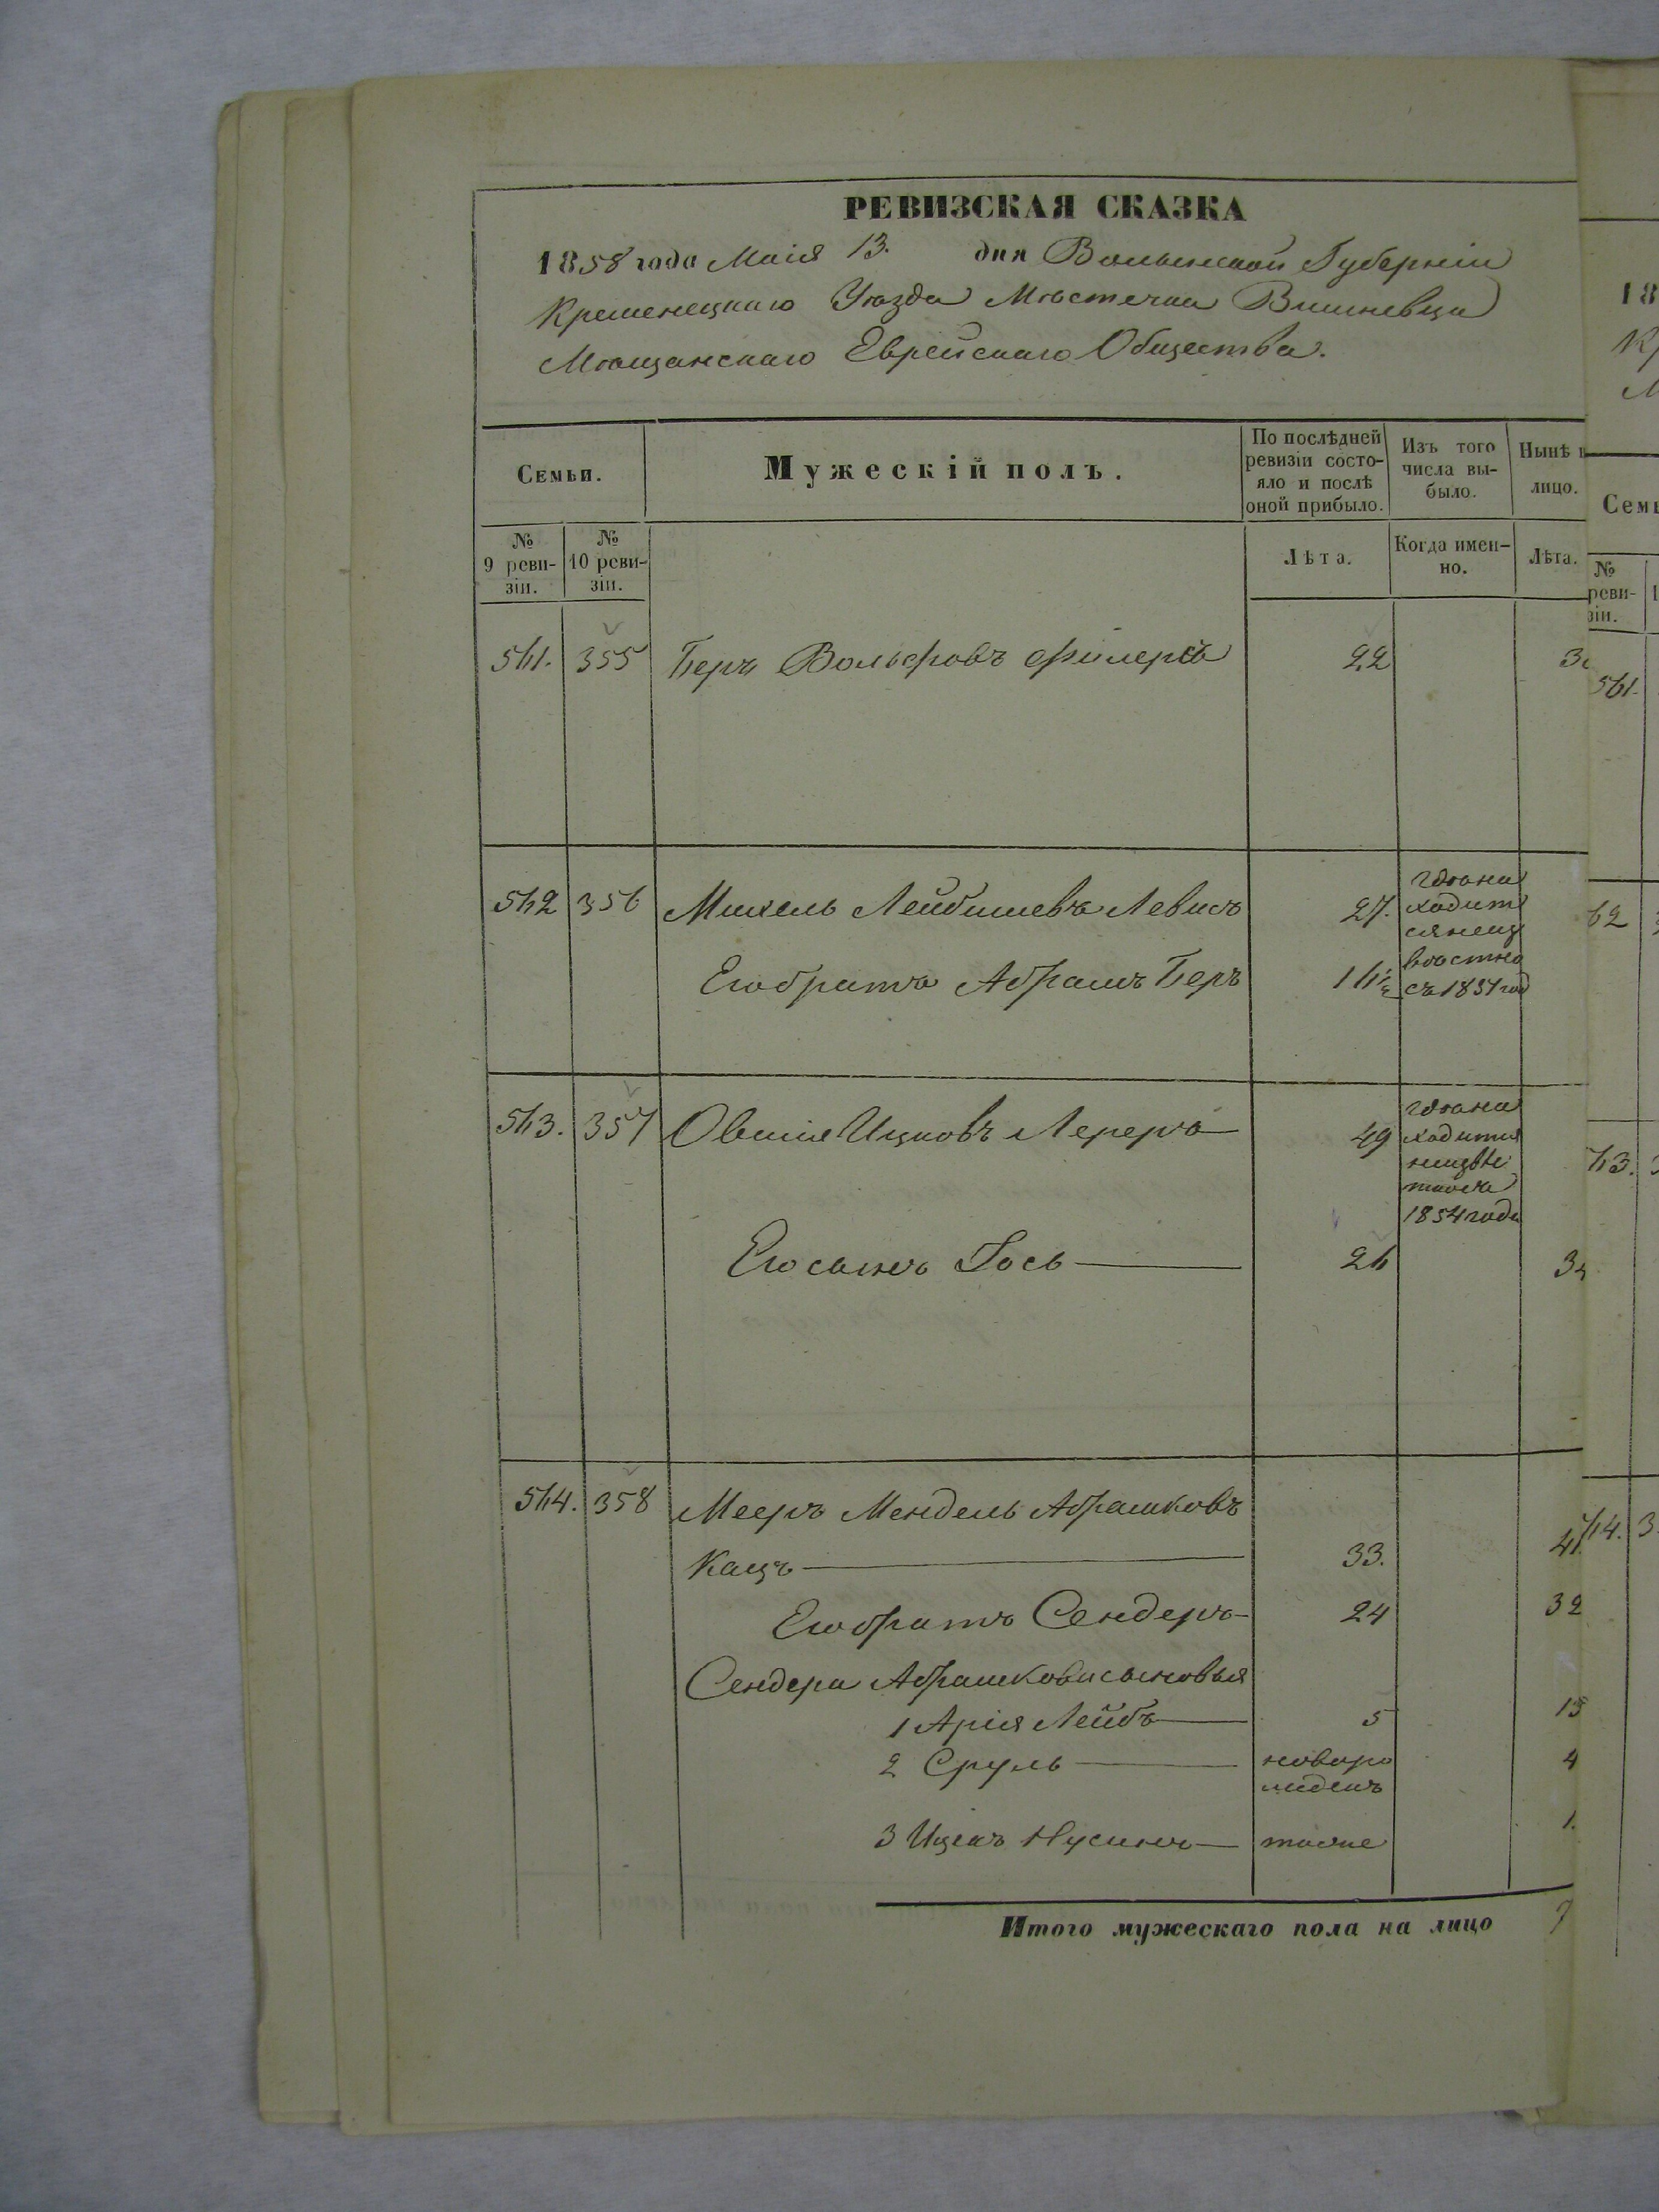 РЕВИЗСКАЯ СКАЗКА
1858 года Маія 13. дня Волынской Губерніи
Кременецкаго Уѣзда Мѣстечка Вишневца
Мѣщанскаго Еврейскаго Общества.
Семьи.
Мужескій полъ.
По послѣдней ревизіи состояло и послѣ оной прибыло.
Изъ того числа выбыло.
Нынѣ
лицо.
№ 9 ревизіи.
№ 10 ревизіи.
Лѣта.
Когда именно.
Лѣта.
561. 355 Беръ Вольфовъ 22
562 356 Михель Лейбишевъ Левисъ 27.
гдѣ на
ходит
ся неиз
вѣстно
съ 1851 год
Его братъ Абрамъ Беръ 16½
563. 357 Овшія Ицковъ Лереръ 49
гдѣ на
ходится
неизвѣ
стно съ
1854 года
Его сынъ Іось 26
564. 358 Мееръ Мендель Абрашковъ
Кацъ 33. 41.
Его братъ Сендеръ 24 32
Сендера Абрашкова сыновья
1 Арія Лейбъ 5 13
2 Сруль новоро
жденъ 4
3 Ицекъ Нусинъ тоже 1.
Итого мужескаго пола на лицо 7
18
Семь
№
реви-
зіи.
561.
62
63.
64. 3